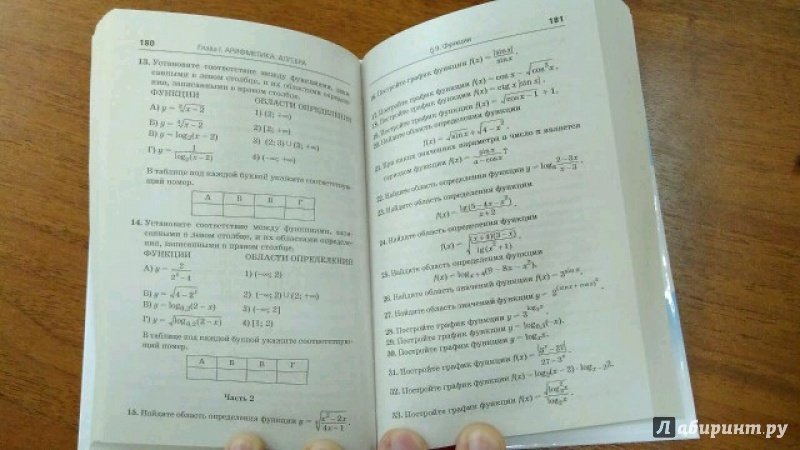 180
Глава I. АРИФМЕТИКА. АЛГЕБРА
13. Установите соответствие между функциями, запи-
санными в левом столбце, и их областями определе-
ния, записанными в правом столбце.
ФУНКЦИИ ОБЛАСТИ ОПРЕДЕЛЕНИЯ
1) (2; +∞)
2) [2; +∞)
В) y = log₂(x − 2) 3) (2; 3) ∪ (3; +∞)
Г) y = 1/log₂(x − 2) 4) (−∞; +∞)
В таблице под каждой буквой укажите соответствую-
щий номер.
А Б В Г
14. Установите соответствие между функциями, запи-
санными в левом столбце, и их областями определе-
ния, записанными в правом столбце.
ФУНКЦИИ ОБЛАСТИ ОПРЕДЕЛЕНИЯ
А) y = 2/(2ˣ − 4) 1) (−∞; 2)
Б) y = √(4 − 2ˣ) 2) (−∞; 2) ∪ (2; +∞)
В) y = log₀,₂(2 − x) 3) (−∞; 2]
Г) y = √(log₀,₂(2 − x)) 4) [1; 2)
В таблице под каждой буквой укажите соответствую-
щий номер.
А Б В Г
Часть 2
15. Найдите область определения функции
§ 9. Функции
181
16. Постройте график функции f(x) = |sin x|/sin x.
17. Постройте график функции f(x) = cos x −
18. Постройте график функции f(x) = ctg x |sin x|.
19. Постройте график функции f(x) = √(cos x − 1) + 1.
20. Найдите область определения функции
f(x) = √sin x + √(4 − x²)
21. При каких значениях параметра a число π является
периодом функции f(x) = sin x/(a − cos x)?
22. Найдите область определения функции
23. Найдите область определения функции
f(x) = lg(5 − 4x − x²)/(x + 2).
24. Найдите область определения функции
f(x) = √((x + 4)(3 − x)/lg(x² + 1)).
25. Найдите область определения функции
f(x) = logₓ₊₄(9 − 8x − x²).
26. Найдите область значений функции f(x) = 3
27. Найдите область значений функции y = 2
28. Постройте график функции y = 3
29. Постройте график функции
30. Постройте график функции
31. Постройте график функции f(x) =
32. Постройте график функции f(x) = log₂(x − 2) ·
33. Постройте график функции f(x) =
Лабиринт.ру